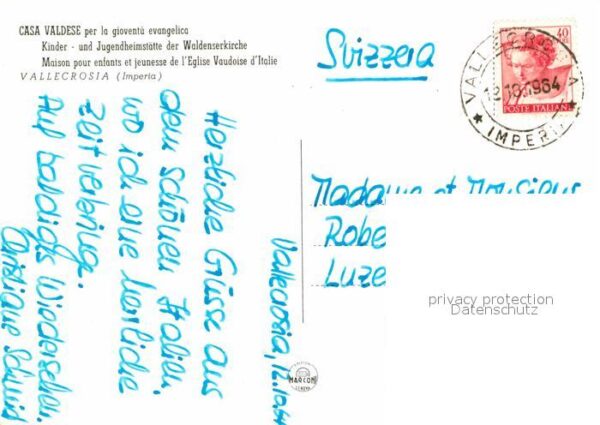 CASA VALDESE per la gioventù evangelica
Kinder - und Jugendheimstätte der Waldenserkirche
Maison pour enfants et jeunesse de l'Eglise Vaudoise d'Italie
VALLECROSIA (Imperia)
Svizzera
40
POSTE ITALIANE
VALLECROSIA
12.10.1964
IMPERIA
Vallecrosia, 12.10.64
Herzliche Grüsse aus
dem schönen Italien,
wo ich eine herrliche
Zeit verbringe.
Auf baldigs Wiedersehen.
Schmid
Madame et Monsieur
Robe
Luze
privacy protection
Datenschutz
MARCONI